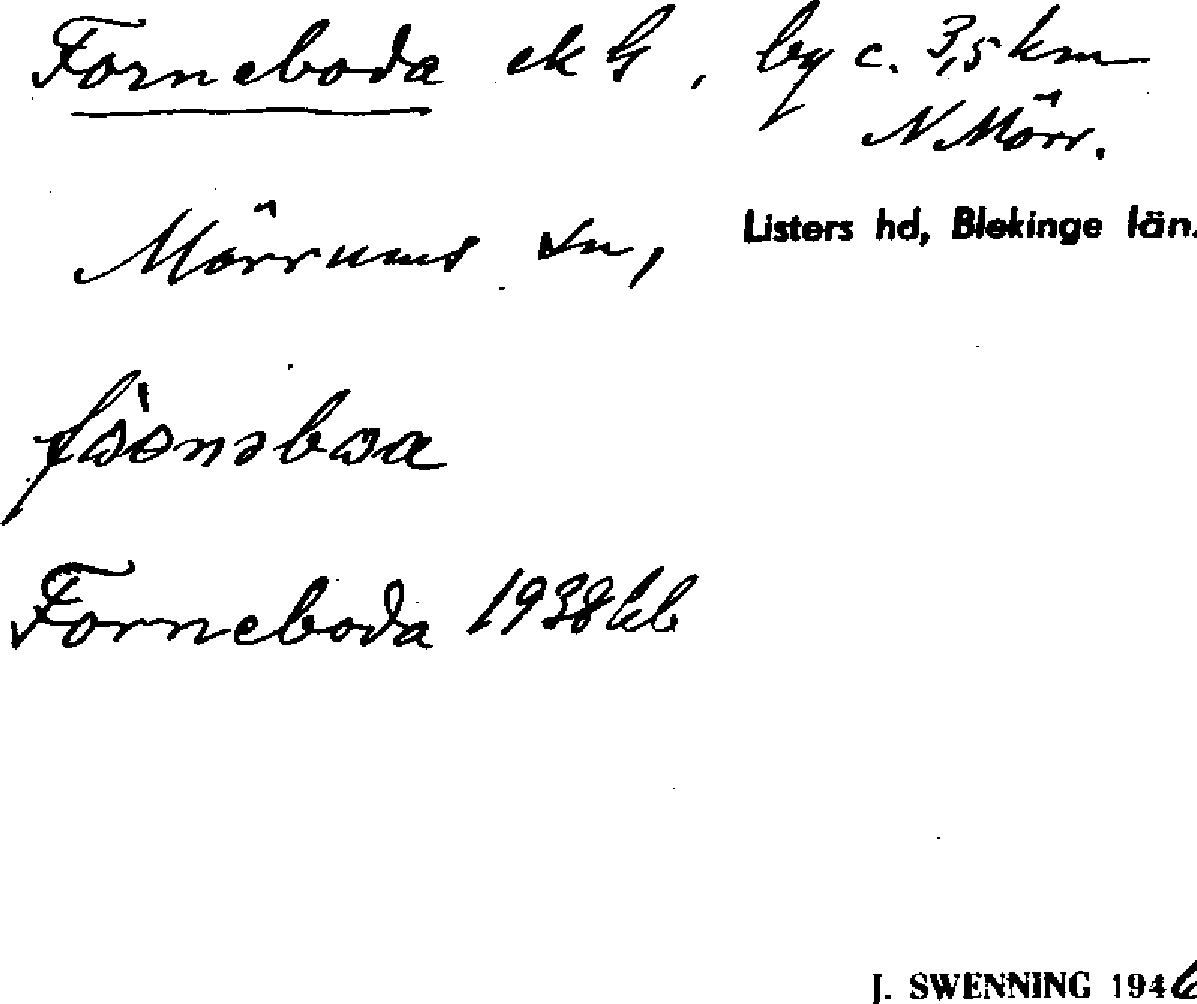 Forneboda ek G, by c. 3,5 km
N Mörr.
Mörrums sn, Listers hd, Blekinge län.
Forneboda 1938 kb
J. SWENNING 1946